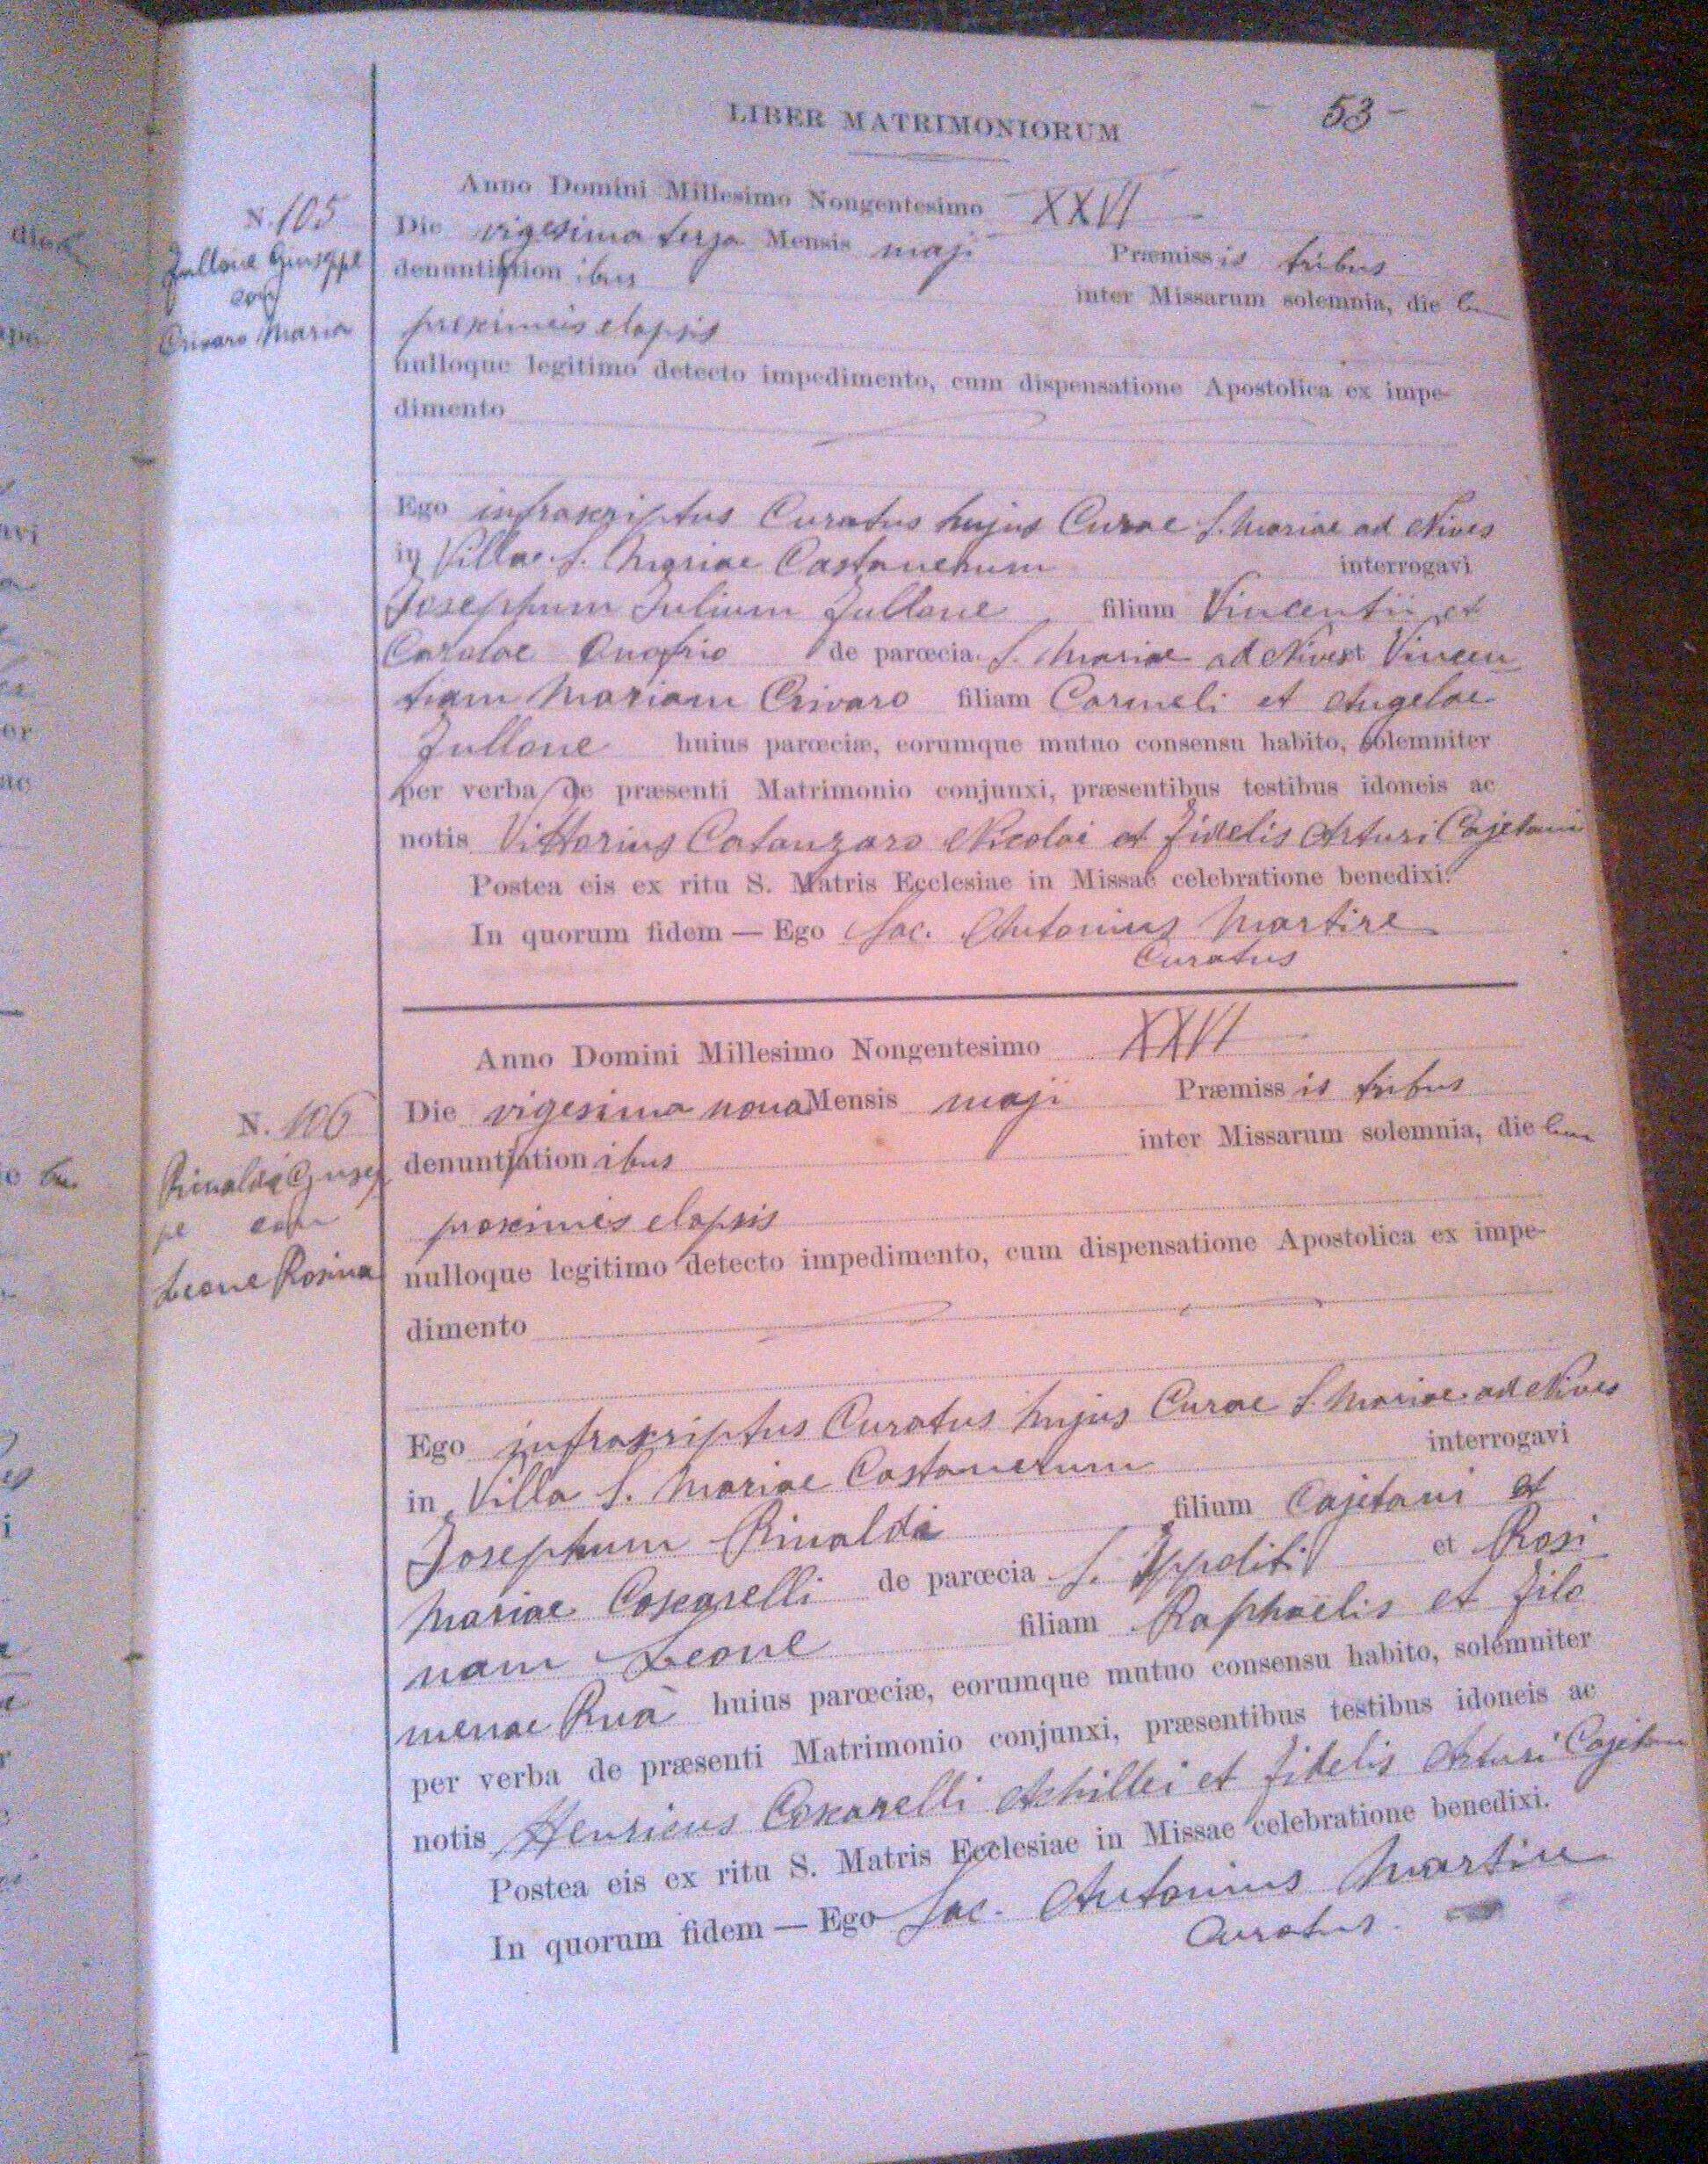 LIBER MATRIMONIORUM
- 53 -
Anno Domini Millesimo Nongentesimo XXVI
N. 105
Die vigesima terza Mensis maji Præmissis tribus
Zullone Giuseppe
denuntiationibus inter Missarum solemnia, die
con
proximis elapsis
Crivaro Maria
nulloque legitimo detecto impedimento, cum dispensatione Apostolica ex impe-
dimento
Ego infrascriptus Curatus hujus Curae S. Mariae ad Nives
in Villae S. Mariae Castanenum interrogavi
Josephum Julium Zullone filium Vincentii et
Carolae Onofrio de parœcia S. Mariae ad Nives et Vincen
tiam Mariam Crivaro filiam Carmeli et Angelae
Zullone huius parœciæ, eorumque mutuo consensu habito, solemniter
per verba de præsenti Matrimonio conjunxi, præsentibus testibus idoneis ac
notis Vittorius Catanzaro Nicolai et Fidelis Arturi Cajetani
Postea eis ex ritu S. Matris Ecclesiae in Missae celebratione benedixi.
In quorum fidem — Ego Sac. Antonius Martire
Curatus
Anno Domini Millesimo Nongentesimo XXVI
N. 106
Die vigesima nona Mensis maji Præmissis tribus
Rinaldi Giusep
denuntiationibus inter Missarum solemnia, die
pe con
proximis elapsis
Leone Rosina
nulloque legitimo detecto impedimento, cum dispensatione Apostolica ex impe-
dimento
Ego infrascriptus Curatus hujus Curae S. Mariae ad Nives
in Villa S. Mariae Castanetum interrogavi
Josephum Rinaldi filium Cajetani et
Mariae Coscarelli de parœcia S. Ippoliti et Rosi
nam Leone filiam Raphaelis et Filo
menae Ruà huius parœciæ, eorumque mutuo consensu habito, solemniter
per verba de præsenti Matrimonio conjunxi, præsentibus testibus idoneis ac
notis Henricus Coscarelli Achillei et Fidelis Arturi Cajetan
Postea eis ex ritu S. Matris Ecclesiae in Missae celebratione benedixi.
In quorum fidem — Ego Sac. Antonius Martire
Curatus.